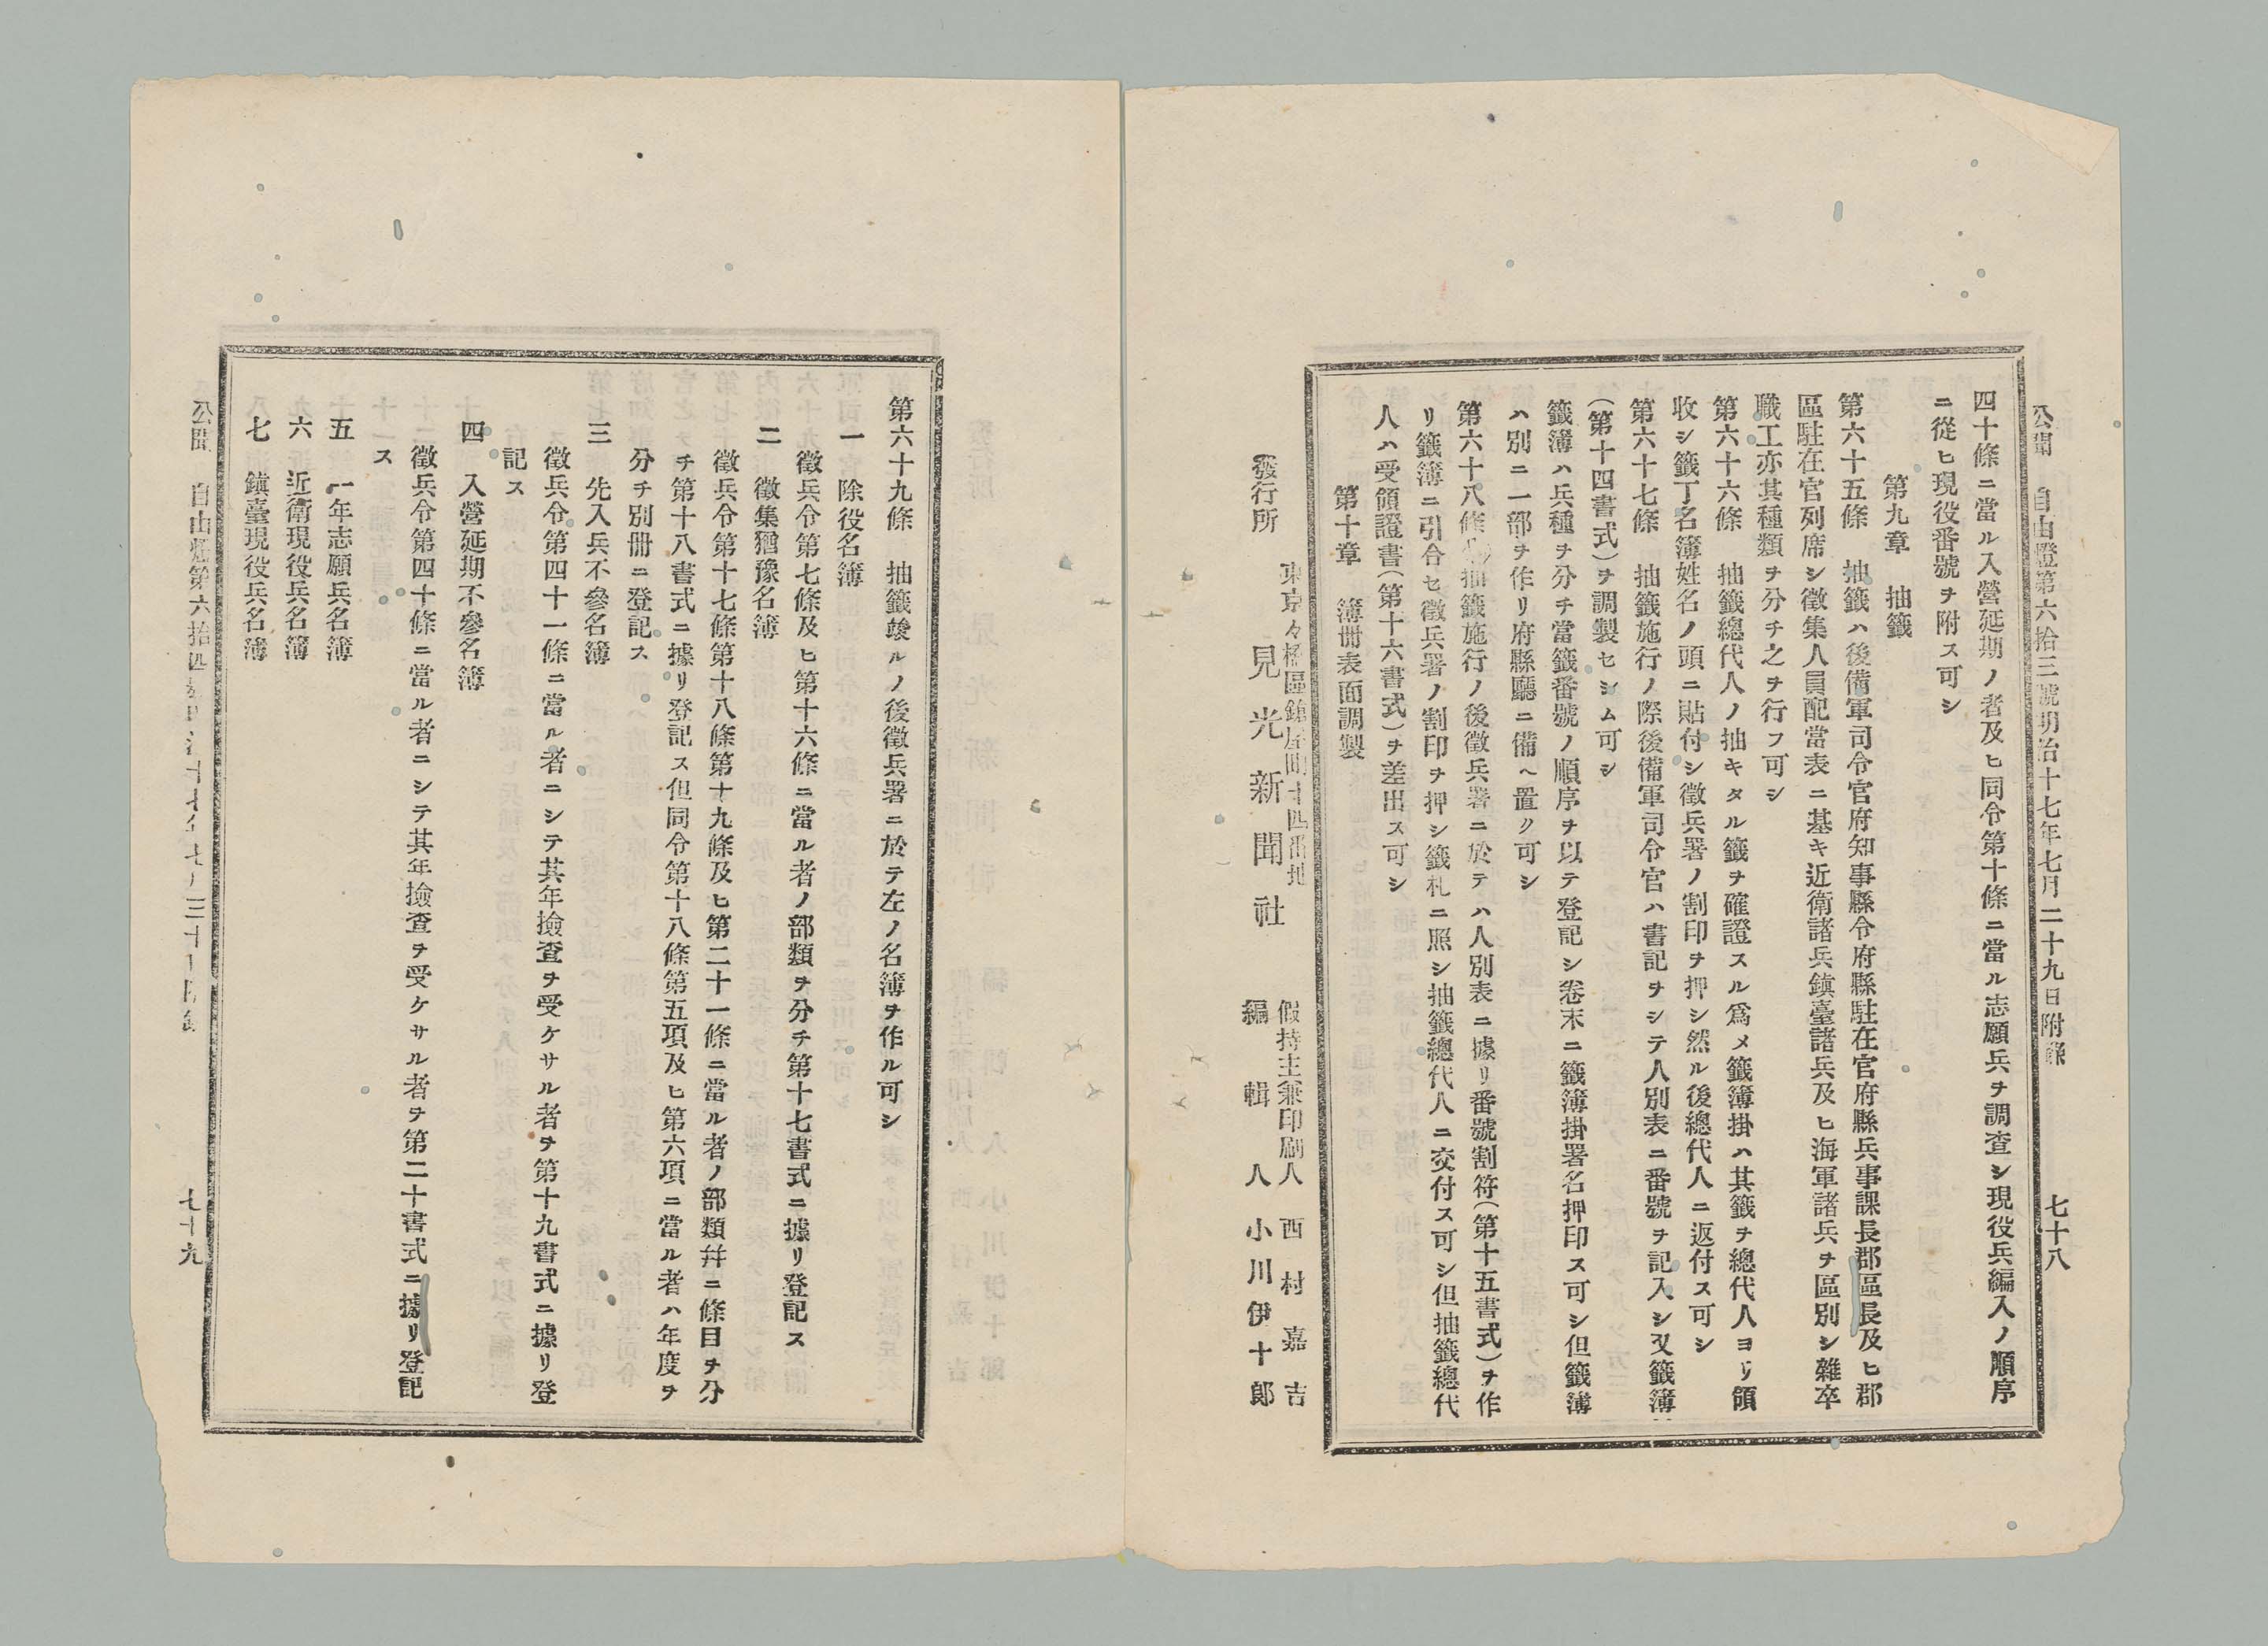 公聞 自由燈第六拾三號明治十七年七月二十九日附錄 七十八
四十條ニ當ル入營延期ノ者及ヒ同令第十條ニ當ル志願兵ヲ調査シ現役兵編入ノ順序
ニ從ヒ現役番號ヲ附ス可シ
第九章 抽籤
第六十五條 抽籤ハ後備軍司令官府知事縣令府縣駐在官府縣兵事課長郡區長及ヒ郡
區駐在官列席シ徵集人員配當表ニ基キ近衛諸兵鎭臺諸兵及ヒ海軍諸兵ヲ區別シ雜卒
職工亦其種類ヲ分チ之ヲ行フ可シ
第六十六條 抽籤總代人ノ抽キタル籤ヲ確證スル爲メ籤簿掛ハ其籤ヲ總代人ヨリ領
收シ籤丁名簿姓名ノ頭ニ貼付シ徵兵署ノ割印ヲ押シ然ル後總代人ニ返付ス可シ
第六十七條 抽籤施行ノ際後備軍司令官ハ書記ヲシテ人別表ニ番號ヲ記入シ又籤簿
(第十四書式)ヲ調製セシム可シ
籤簿ハ兵種ヲ分チ當籤番號ノ順序ヲ以テ登記シ卷末ニ籤簿掛署名押印ス可シ但籤簿
ハ別ニ一部ヲ作リ府縣廳ニ備ヘ置ク可シ
第六十八條 抽籤施行ノ後徵兵署ニ於テハ人別表ニ據リ番號割符(第十五書式)ヲ作
リ籤簿ニ引合セ徵兵署ノ割印ヲ押シ籤札ニ照シ抽籤總代人ニ交付ス可シ但抽籤總代
人ハ受領證書(第十六書式)ヲ差出ス可シ
第十章 簿冊表面調製
東京々橋區鎗屋町十四番地 假持主兼印刷人 西村嘉吉
(發行所 見光新聞社 編輯人 小川伊十郎
第六十九條 抽籤竣ルノ後徵兵署ニ於テ左ノ名簿ヲ作ル可シ
一 除役名簿
徵兵令第七條及ヒ第十六條ニ當ル者ノ部類ヲ分チ第十七書式ニ據リ登記ス
二 徵集猶豫名簿
徵兵令第十七條第十八條第十九條及ヒ第二十一條ニ當ル者ノ部類幷ニ條目ヲ分
チ第十八書式ニ據リ登記ス但同令第十八條第五項及ヒ第六項ニ當ル者ハ年度ヲ
分チ別冊ニ登記ス
三 先入兵不參名簿
徵兵令第四十一條ニ當ル者ニシテ其年撿査ヲ受ケサル者ヲ第十九書式ニ據リ登
記ス
四 入營延期不參名簿
徵兵令第四十條ニ當ル者ニシテ其年撿査ヲ受ケサル者ヲ第二十書式ニ據リ登記
ス
五 一年志願兵名簿
六 近衛現役兵名簿
七 鎭臺現役兵名簿
公聞 自由燈第六拾四 七十九